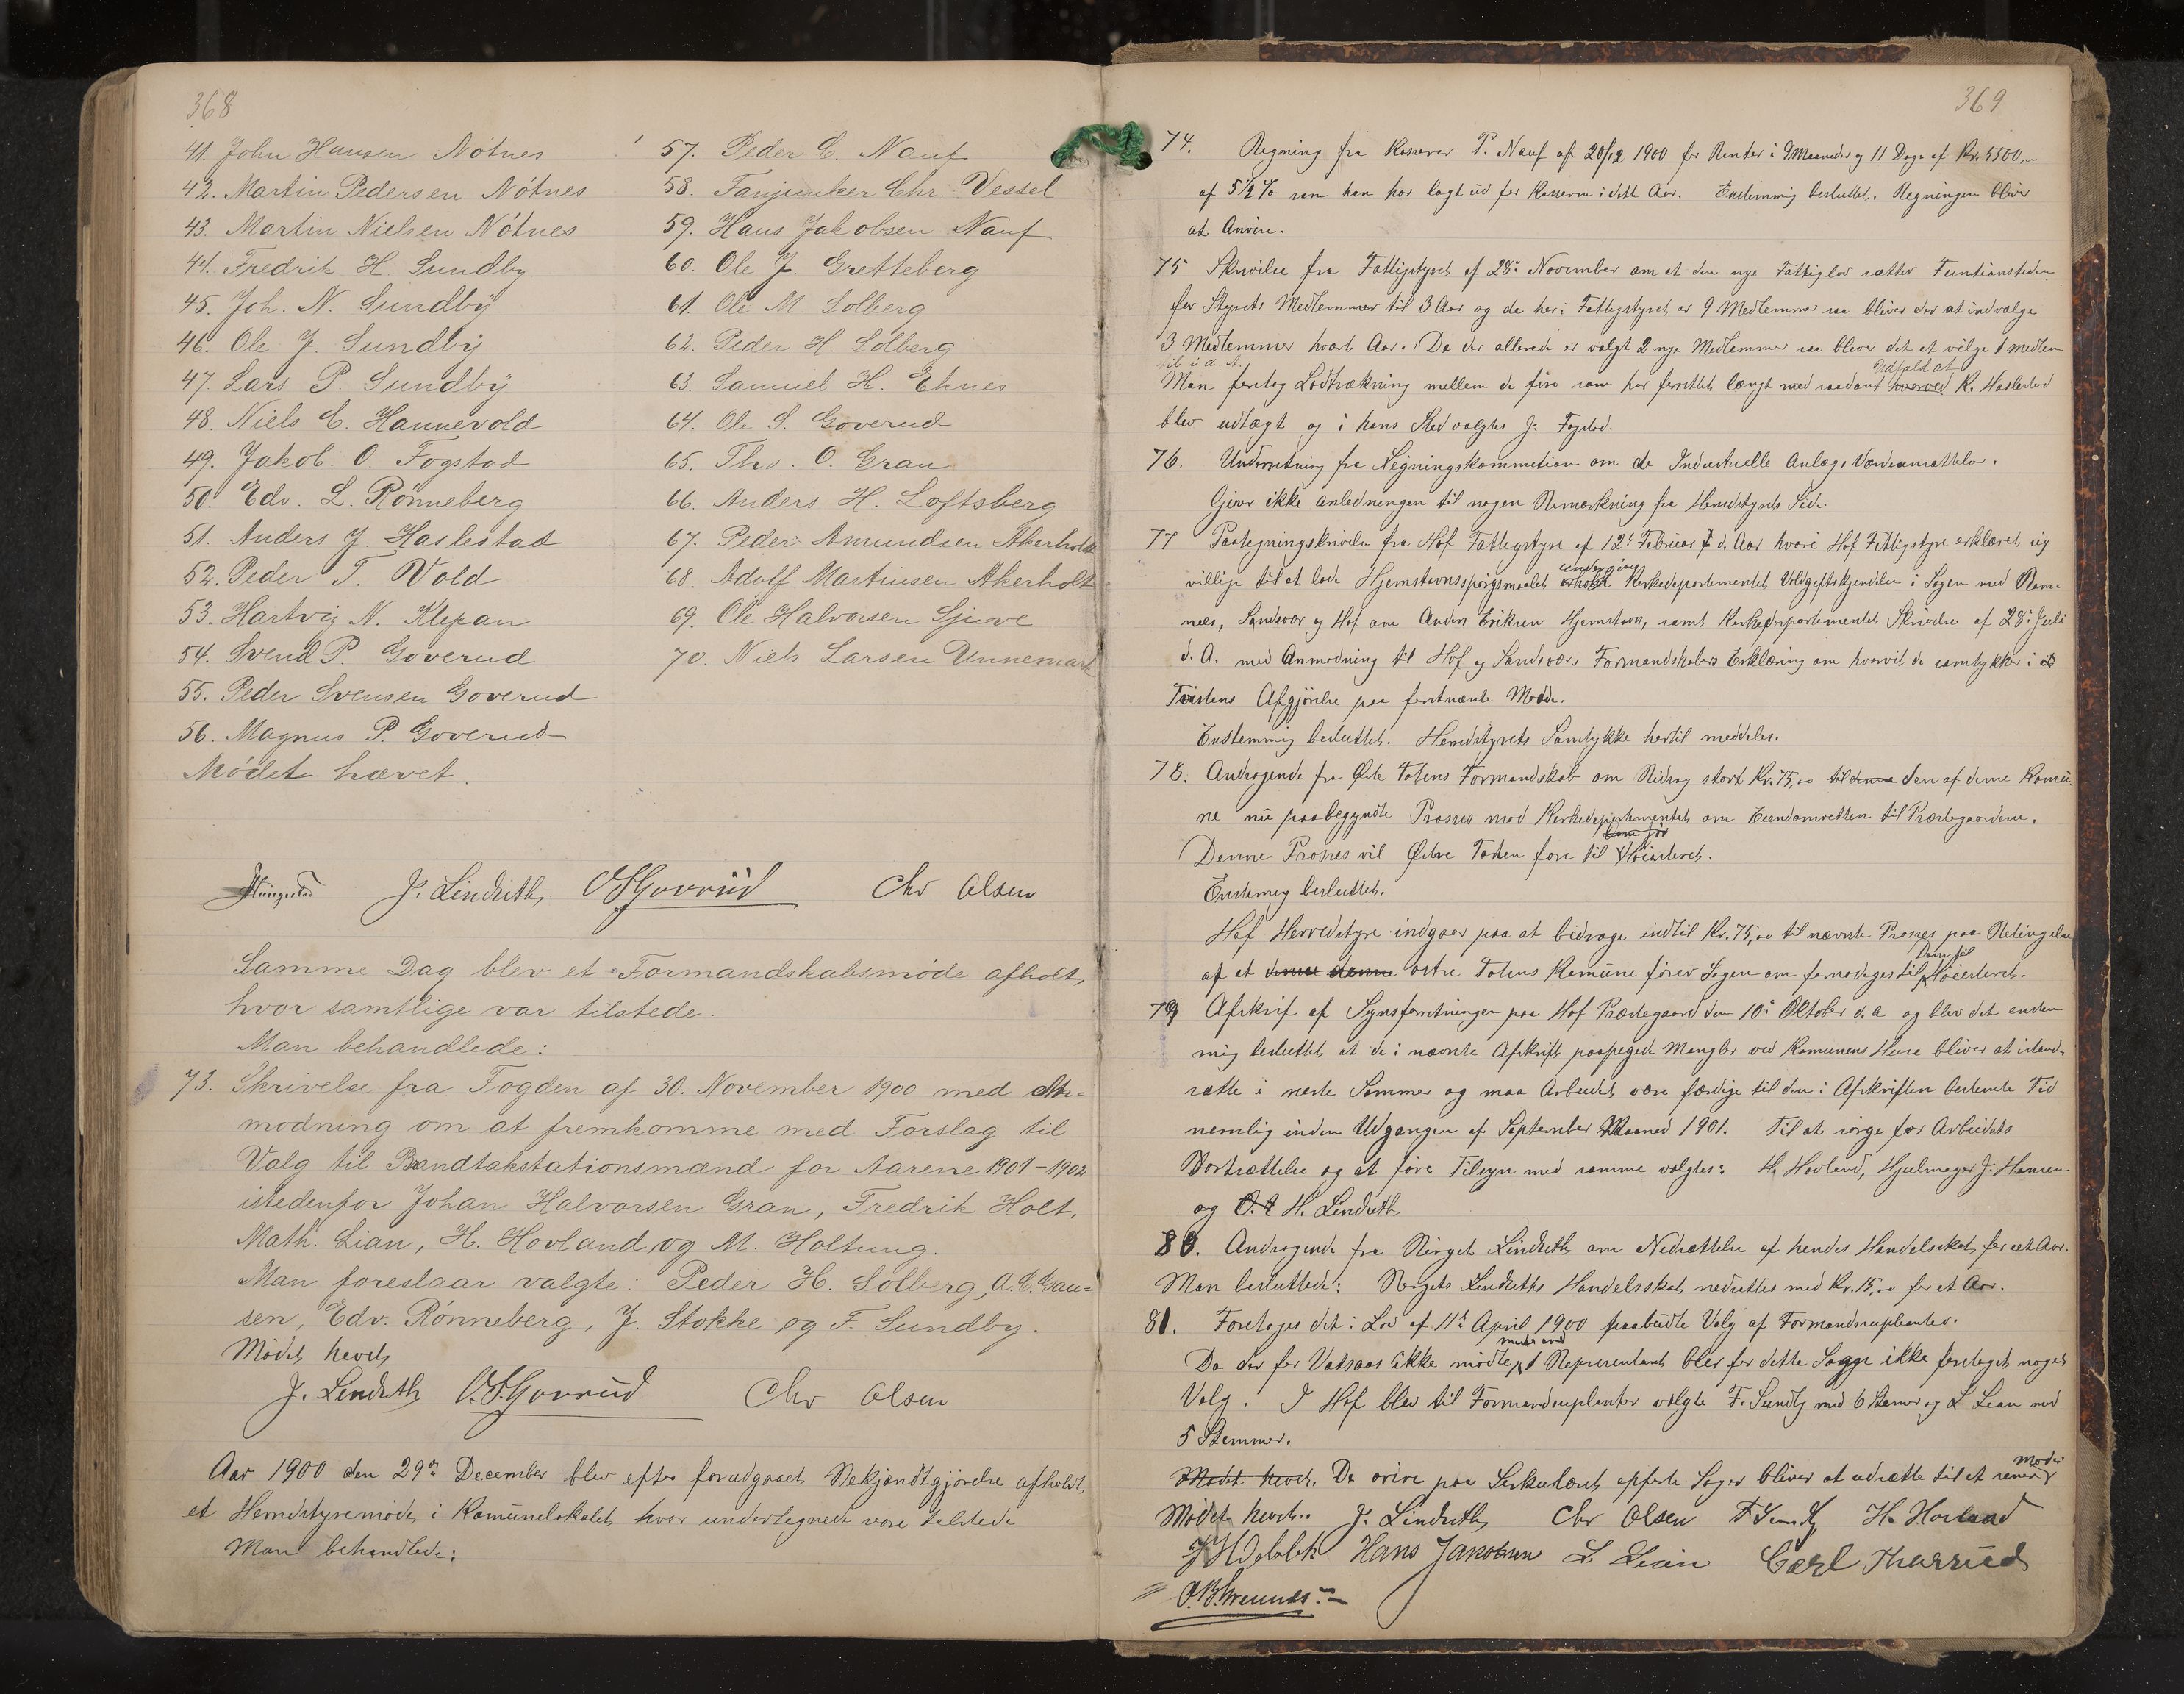 368
41. John Hansen Nötnes
42. Martin Pedersen Nötnes
43. Martin Nielsen Nötnes
44. Fredrik H. Sundby
45. Joh. N. Sundby
46. Ole J. Sundby
47. Lars P. Sundby
48. Niels C. Hannevold
49. Jakob. O. Fogstad
50. Edv. L. Rönneberg
51. Anders J. Haslestad
52. Peder T. Vold
53. Hartvig N. Klepan
54. Svend P. Goverud
55. Peder Svensen Goverud
56. Magnus P. Goverud
Mödet hævet.
57. Peder C. Nauf
58. Tanjunker Chr. Vessel
59. Hans Jakobsen Nauf
60. Ole J. Gretteberg
61. Ole M. Solberg
62. Peder H. Solberg
63. Samuel H. Ehnes
64. Ole S. Goverud
65. Thv. O. Gran
66. Anders H. Loftsberg
67. Peder Amundsen Akerholt
68. Adolf Martinsen Akerholt
69. Ole Halvorsen Gjuve
70. Niels Larsen Unnemark
J. Lindseth O S Goverud Chr Olsen
Samme Dag blev et Formandskabsmöde afholt,
hvor samtlige var tilstede.
Man behandlede:
73. Skrivelse fra Fogden af 30. November 1900 med An-
modning om at fremkomme med Forslag til
Valg til Brandtakstationsmænd for Aarene 1901-1902
istedenfor Johan Halvorsen Gran, Fredrik Holt,
Math. Lian, H. Hovland og M. Holtung.
Man foreslaar valgte: Peder H. Solberg, A. C. Gau-
sen, Edv. Rönneberg, J. Stokke og F. Sundby.
Mödet hevet
J. Lindseth O. S. Goverud Chr Olsen
Aar 1900 den 29de December blev efter forudgaaet Bekjendtgjörelse afholdt
et Herredstyremöde i Komunelokalet hvor undertegnede vare tilstede
Man behandlede:
369
74. Regning fra Kasserer P. Nauf af 20/12 1900 for Renter i 9 Maaneder og 11 Dage af Kr. 5500,00
af 5 1/2 % som han har lagt ud for Kassern i dette Aar. Enstemmig besluttet. Regningen bliver
at Anvise.
75 Skrivelse fra Fattigstyret af 28de November om at den nye Fattiglov sætter Funtionstiden
for Styrets Medlemmer til 3 Aar og da her i Fattigstyret er 9 Medlemmer saa bliver der at indvælge
3 Medlemmer hvert Aar. Da der allerede er valgt 2 nye Medlemmer saa bliver det at vælge 1 medlem
til i d. A.
Udfald at
Man foretog Lodtrækning mellem de fire som har forrettet længst med saadant hvorved K. Haslestad
blev udlagt og i hans Sted valgtes J. Fogstad.
76. Underretning fra Ligningskommetion om de Industrielle Anlægs Værdiansættelse.
Giver ikke anledningen til nogen Bemærkning fra Herredstyrets Side.
77 Paategningskrivelse fra Hof Fattigstyre af 12te Februar d. Aar hvori Hof Fattigstyre erklæret sig
undergives
villige til at lade Hjemstavnsspörgsmaalet Kirkedepartementet Voldgiftskjendelse i Sagen med Ram-
nes, Sandsvær og Hof om Anders Eriksen Hjemstavn, samt Kirkedepartementet Skrivelse af 28de Juli
d. A. med Anmodning til Hof og Sandsværs Formandskabers Erklæring om hvorvidt de samtykker i
Tvistens Afgjörelse paa förstnævnte Maade.
Enstemmig besluttet. Herredstyrets Samtykke hertil meddeles.
78. Andragende fra Östre Totens Formandskab om Bidrag stort Kr. 75,00 til denne den af denne Komu-
ne nu paabegyndte Prosses mod Kirkedepartementet om Eiendomsretten til Præstegaardene.
Denne Prosses vil Östre Toten före til Höiesteret.
Enstemig besluttet.
Hof Herredstyre indgaar paa at bidrage indtil Kr. 75,00 til nævnte Prosses paa Betingelse
af at denne denne östre Totens Komune förer Sagen om fornödiges til Höiesteret.
79 Afskrif af Synsforretningen paa Hof Præstegaard den 10de Oktober d. a og blev det enstem
mig besluttet at de i nævnte Afskrift paapegede Mangler ved Komunens Huse bliver at istand-
sætte i næste Sommer og maa Arbeidet være færdige til den i Afskriften bestemte Tid
nemlig inden Udgangen af September Maaned 1901. Til at sörge for Arbeidets
Bortsættelse og at före Tilsyn med samme valgtes: H. Hovland, Hjulmager J. Hansen
og O. A H. Lindseth
80. Andragende fra Birget Lindseth om Nedsættelse af hendes Handelsskat for et Aar.
Man besluttede: Birgets Lindseths Handelsskat nedsettes med Kr. 15,00 for et Aar.
81. Foretoges det i Lov af 11te April 1900 paabudte Valg af Formandsupleanter.
Da der for Vatsaas ikke mödte 1 Representant blev for dette Sogn ikke foretaget noget
Valg. I Hof blev til Formandsuplanter valgte F. Sundby med 6 Stemmer og L Lian med
5 Stemmer.
Mödet hevet. De övrige paa Serkulæret opförte Sager bliver at udsætte til et senere Möde
Mödet hevet. J. Lindseth Chr Olsen F Sundby H. Hovland
Hans Jakobsen L. Lian Carl